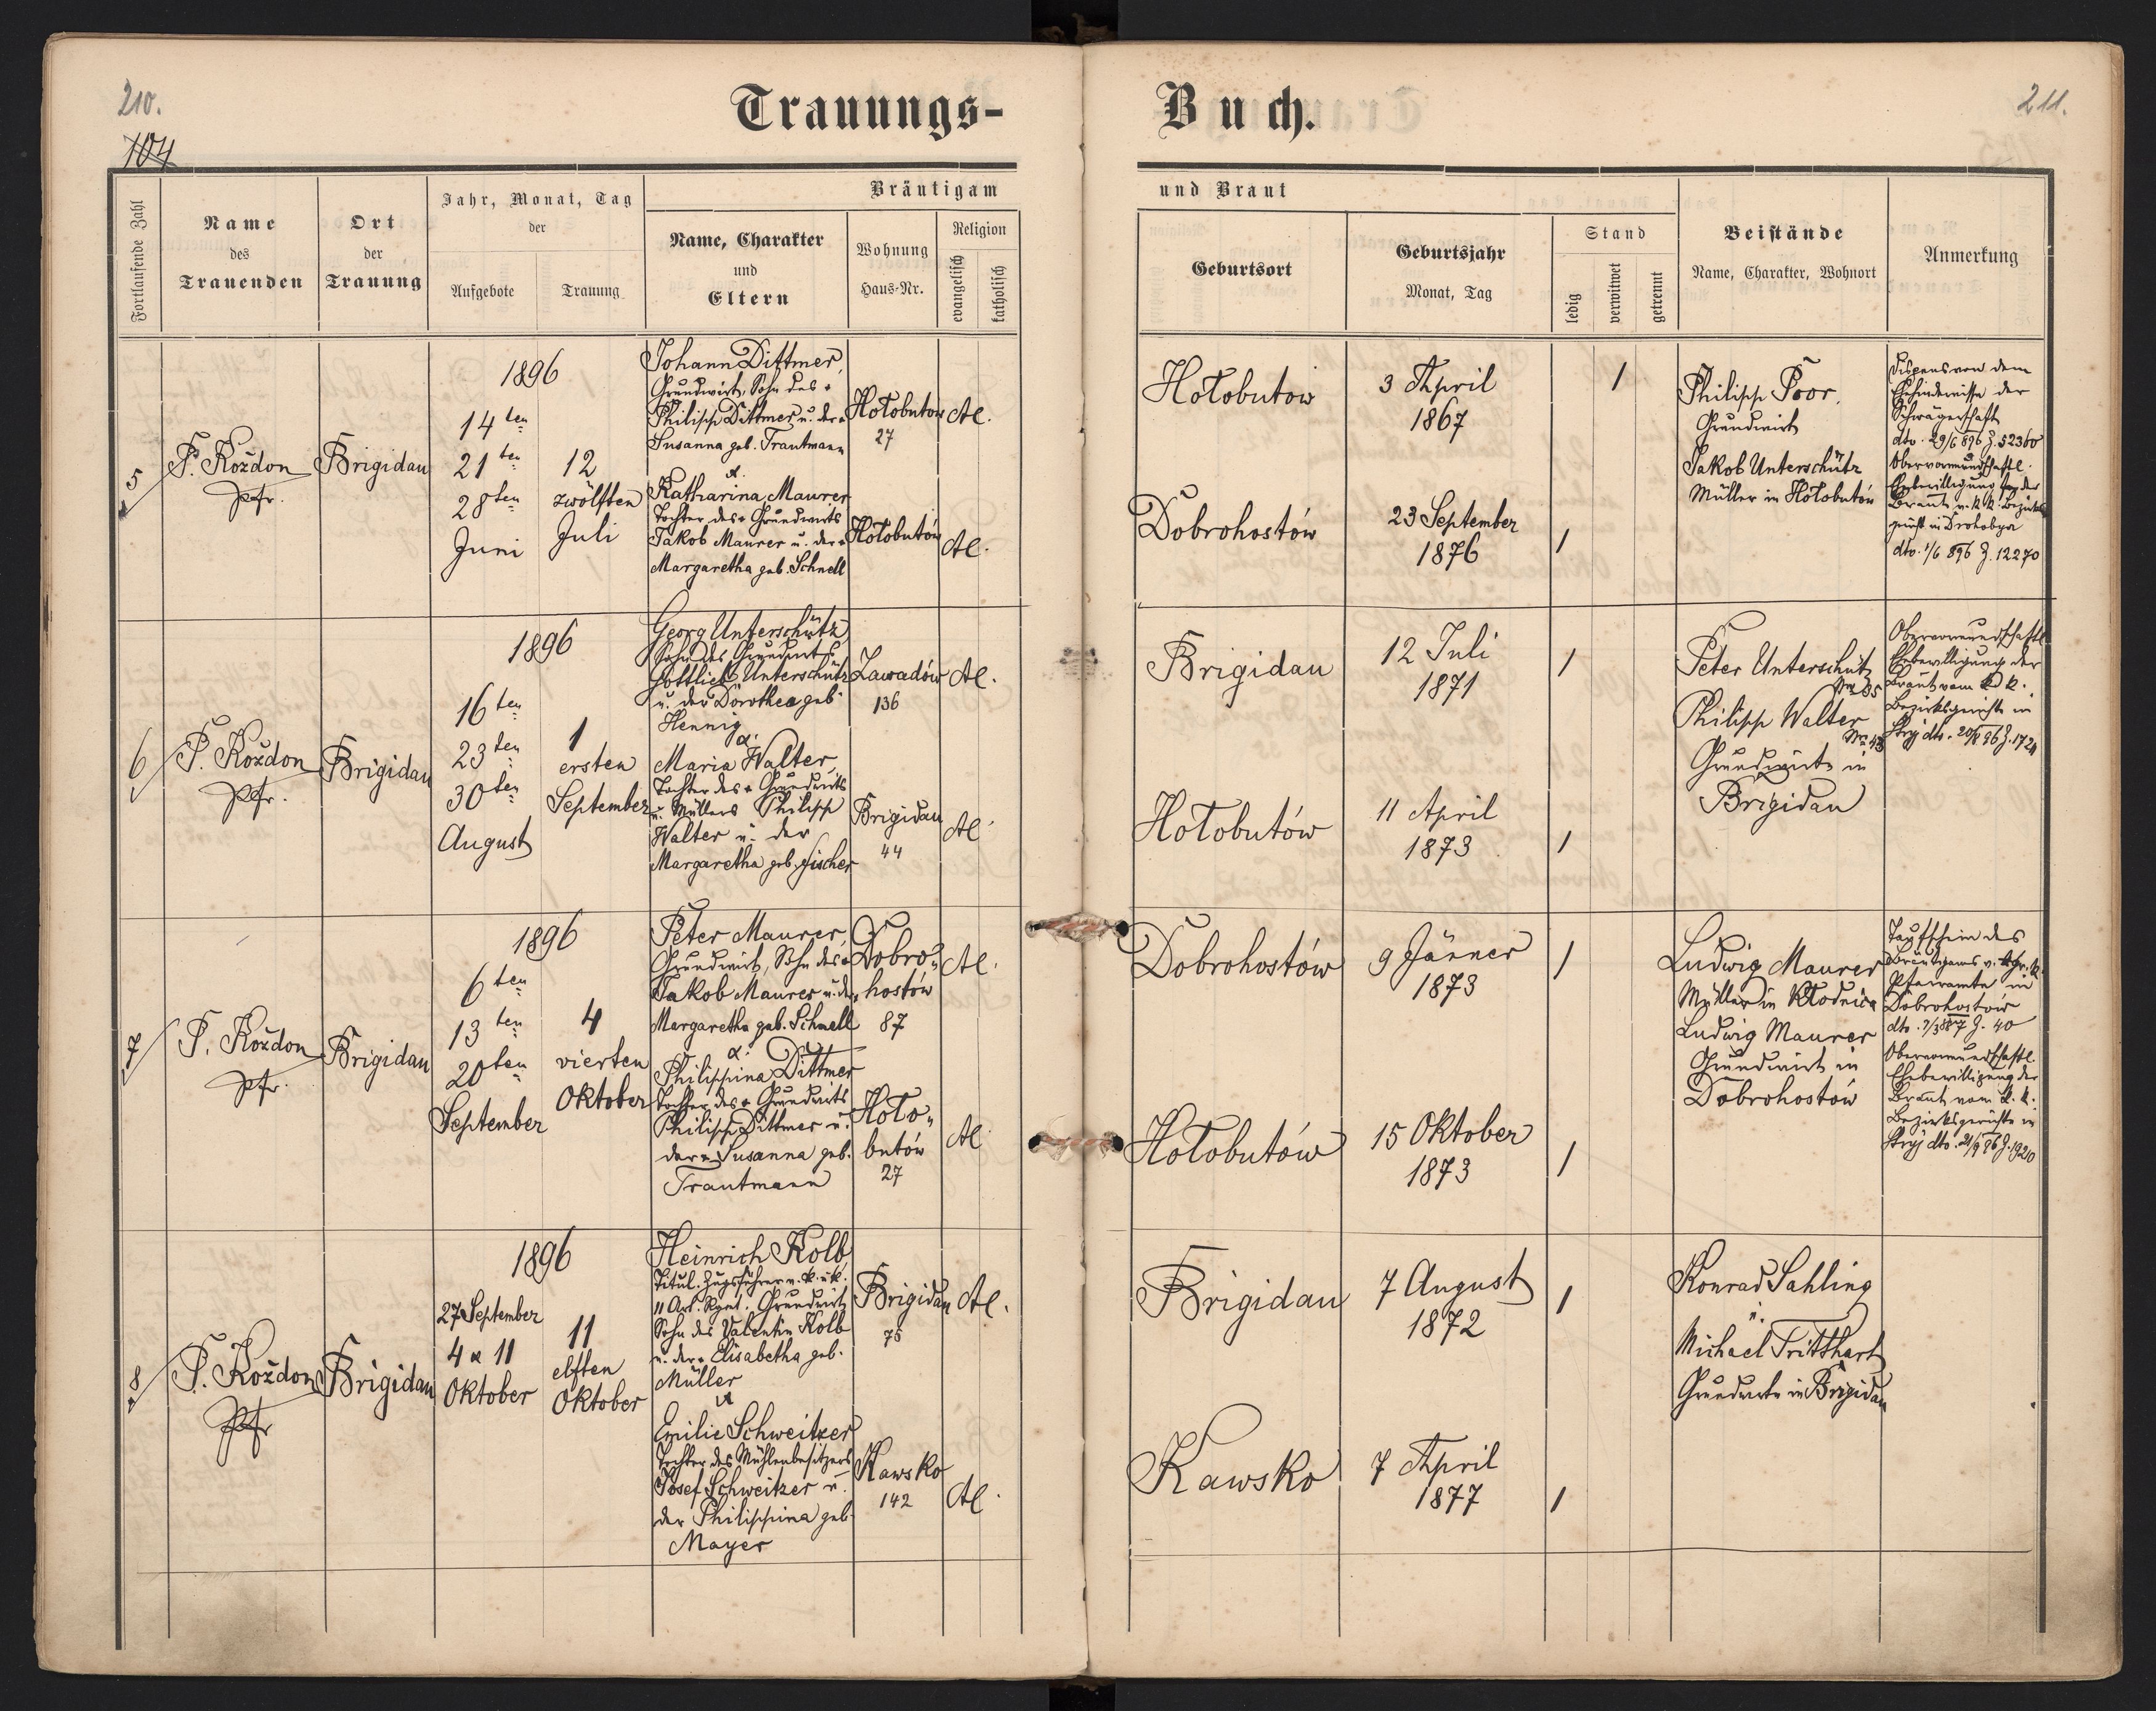 210.
104
Trauungs-
Fortlaufende Zahl
Name
des
Trauenden
Ort
der
Trauung
Jahr, Monat, Tag
der
Aufgebote
Trauung
Bräutigam
Name, Charakter
und
Eltern
Wohnung
Haus-Nr.
Religion
evangelisch
katholisch
5
P. Kożdon
Pfr.
Brigidau
1896
14ten
21ten
28ten
Juni
12
zwölften
Juli
Johann Dittmer,
Grundwirt, Sohn des +
Philipp Dittmer u. der +
Susanna geb. Trautmann
&
Katharina Maurer
Tochter des + Grundwirts
Jakob Maurer u. der +
Margaretha geb. Schnell
Hołobutow
27
Hołobutów
AC.
AC.
6
P. Kożdon
Pfr.
Brigidau
1896
16ten
23ten
30ten
August
1
ersten
September
Georg Unterschütz
Sohn des Grundwirts
Gottlieb Unterschütz
u. der Dorothea geb.
Hennig
&
Maria Walter,
Tochter des + Grundwirts
u. Müllers Philipp
Walter u. der
Margaretha geb. Fischer
Zawadów
136
Brigidau
44
AC.
AC.
7
P. Kożdon
Pfr.
Brigidau
1896
6ten
13ten
20ten
September
4
vierten
Oktober
Peter Maurer,
Grundwirt, Sohn des +
Jakob Maurer u. der +
Margaretha geb. Schnell
&
Philippina Dittmer
Tochter des + Grundwirts
Philipp Dittmer u.
der + Susanna geb.
Trautmann
Dobro-
hostów
87
Hoło-
butów
27
AC.
AC
8
P. Kożdon
Pfr
Brigidau
1896
27 September
4 & 11
Oktober
11
elften
Oktober
Heinrich Kolb
Titul. Zugsführer v. k. u. k.
11 Art. Rgmt. Grundwirt
Sohn des Valentin Kolb
u. der + Elisabetha geb.
Müller
&
Emilie Schweitzer
Tochter des Mühlenbesitzers
Josef Schweitzer u.
der Philippina geb.
Mayer
Brigidau
75
Kawsko
142
AC.
AC.
211.
Buch.
und Braut
Geburtsort
Geburtsjahr
Monat, Tag
Stand
ledig
verwitwet
getrennt
Beistände
Name, Charakter, Wohnort
Anmerkung
Hołobutow
3 April
1867
1
Dobrohostów
23 September
1876
1
Philipp Poor,
Grundwirt
Jakob Unterschütz
Müller in Hołobutów
Dispens von dem
Ehehindernisse der
Schwägerschaft
dto. 29/6 896 Z. 52360
Obervormundschaftl.
Ehebewilligung der
Braut v. k. k. Bezirks
gericht in Drohobycz
dto. 1/6 896 Z. 12270
Brigidau
12 Juli
1871
1
Hołobutów
11 April
1873
1
Peter Unterschütz
Philipp Walter
Grundwirte in
Brigidau
Obervormundschaftl.
Ehebewilligung der
Braut vom k. k.
Bezirksgerichte in
Dobrohostów
9 Jänner
1873
1
Hołobutów
15 Oktober
1873
1
Ludwig Maurer
Müller in Kłodnica
Ludwig Maurer
Grundwirt in
Dobrohostów
Taufschein des
Bräutigams v.
Pfarramte in
Dobrohostów
Obervormundschaftl.
Ehebewilligung der
Braut vom k. k.
Bezirksgerichte in
Stryj dto. 21/9 96 Z. 1920
Brigidau
7 August
1872
1
Kawsko
7 April
1877
1
Konrad Sahling
u.
Michael Tritthart
Grundwirte in Brigidau